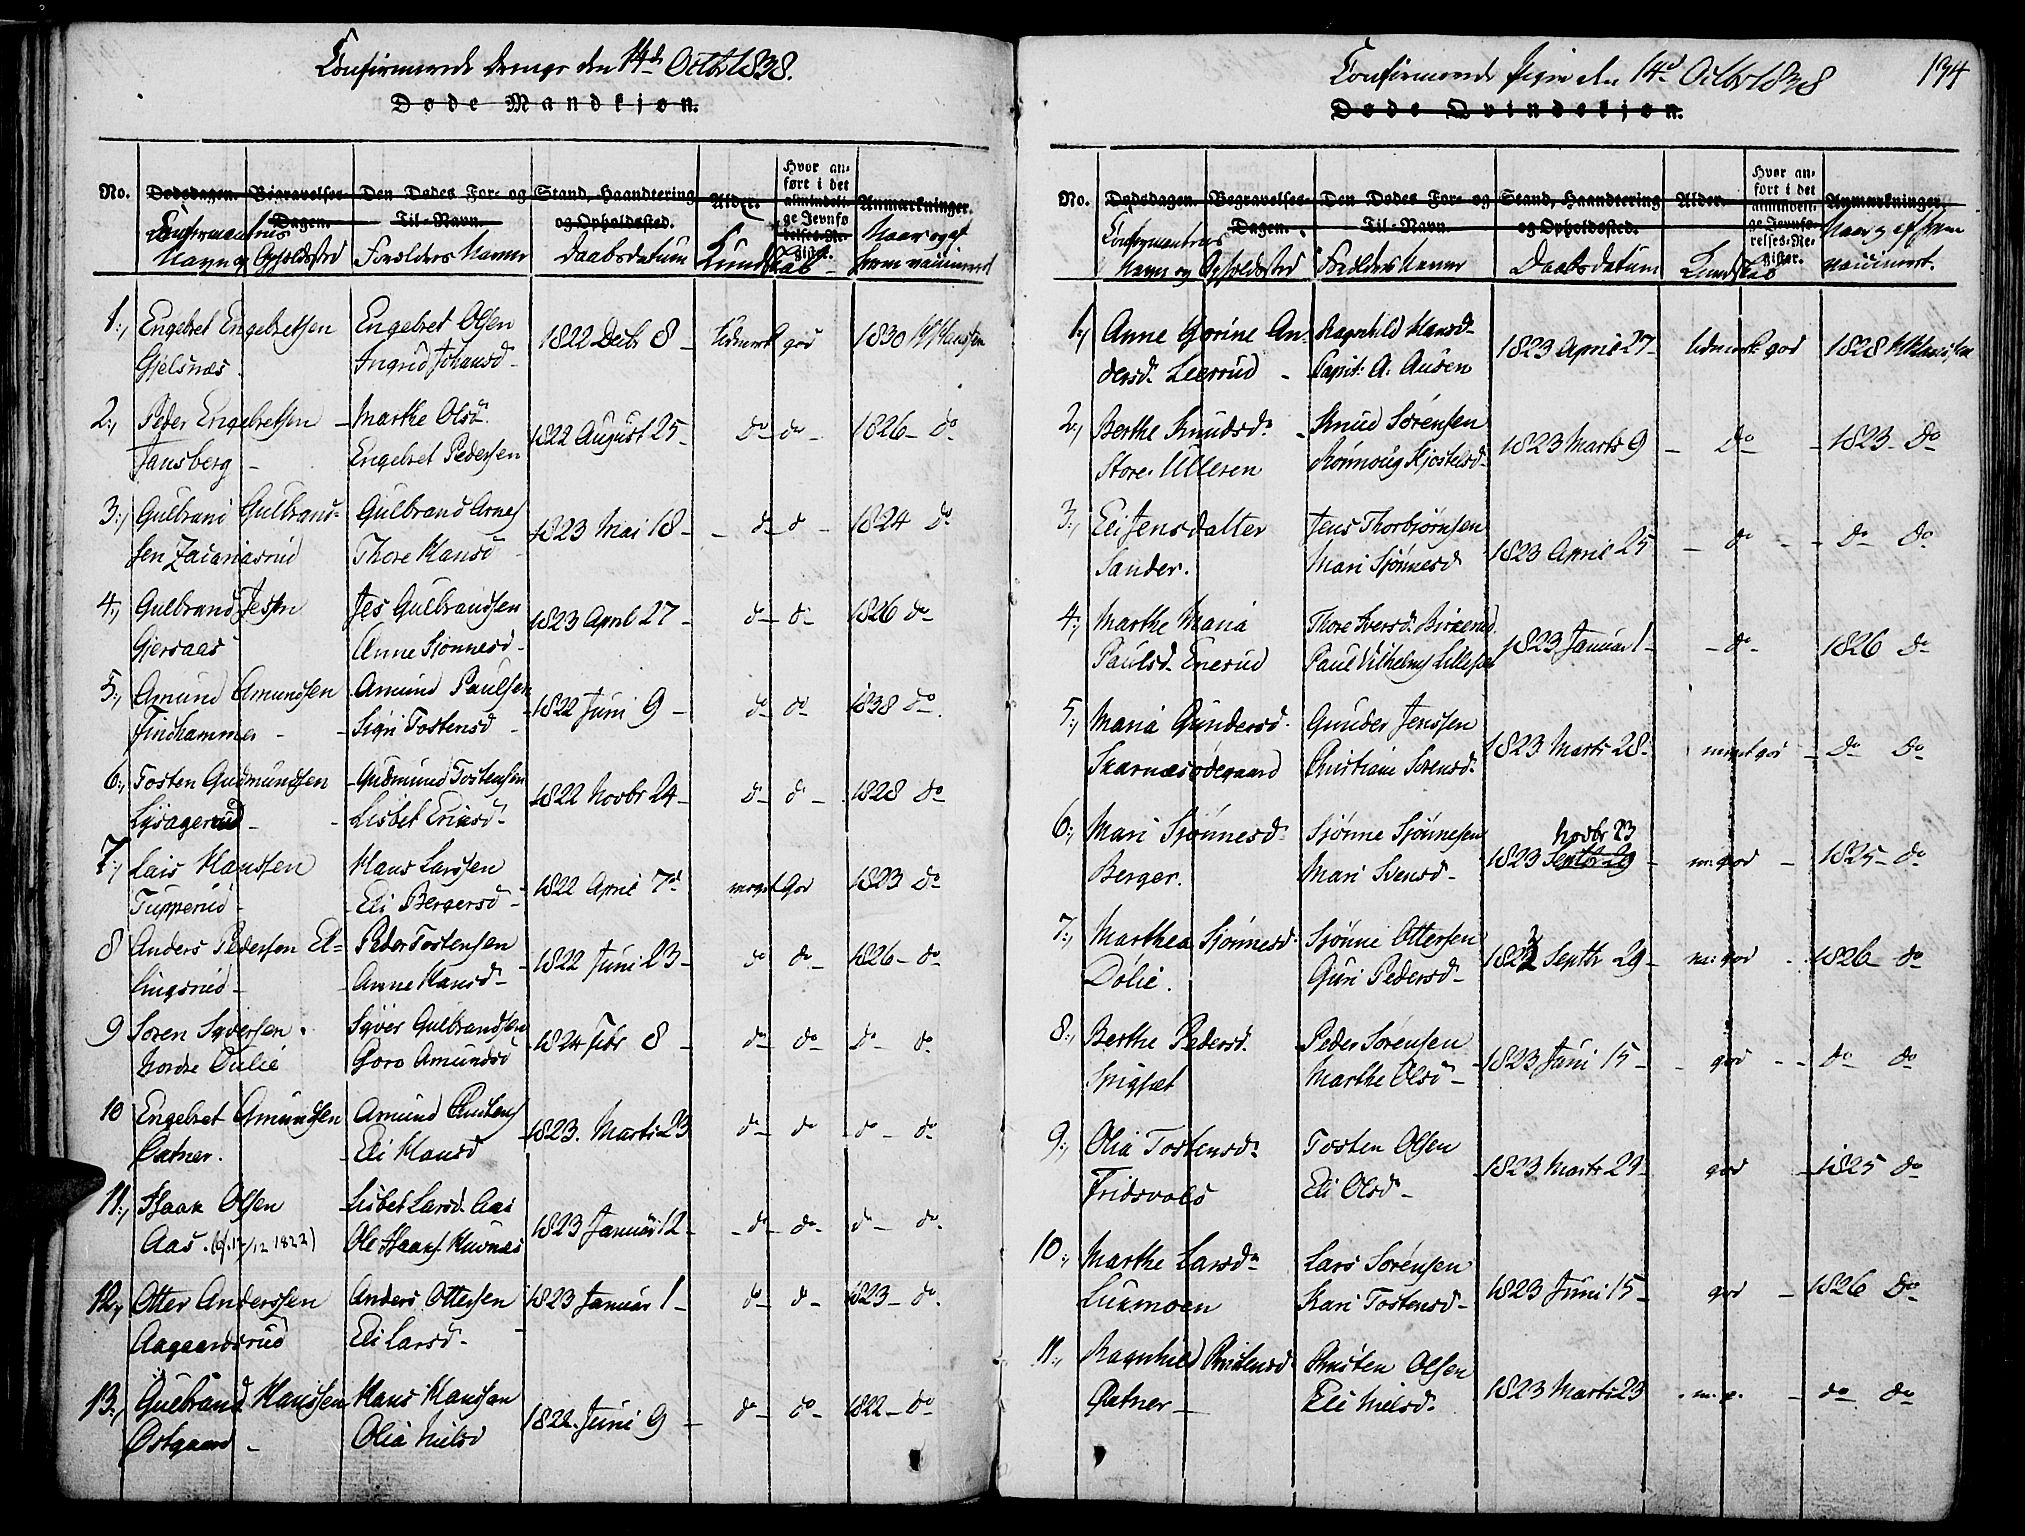 Confirmerede Drenge den 14d Octbr 1838.
Døde Mandkjøn.
No. Dødsdagen. Begravelses-Dagen. Den Dødes For- og Til-Navn. Stand, Haandtering og Opholdssted. Alder. Hvor anført i det almindelige Jevnførelses-Register. Anmærkninger.
Confirmantens Navn og Opholdssted Forældres Navne Daabsdatum Kundskab Naar og af hvem vaccineret
1., Engebret Engebretsen Engebret Olsen 1822 Decbr 8 - Udmerk god 1830 Hansen
Gjelsnæs Ingrid Johansd -
2., Peder Engebretsen - Marthe Olsd. 1822 August 25 - do - do - 1826 - do
Jansberg - Engebret Pedersen
3., Gulbrand Gulbrand- Gulbrand Arnes 1823 Mai 18 - do do - 1824 do
sen Zacariasrud Thore Hansd
4., Gulbrand Jesen Jes Gulbrandsen 1823 April 27 - do - do - 1826 do
Gjersaas Anne Sjønnesd -
5., Amund Amundsen Amund Paulsen 1822 Juni 9 - do - do 1838 do.
Findhammer - Sigri Tostensd -
6., Tosten Gudmundsen Gudmund Tostensen 1822 Novbr 24 - do - do - 1828 do
Lysagerud - Lisbet Eriksd -
7., Lars Hanssen Hans Larssen 1822 April 7d meget God 1823 do
Tupperud - Eli Bergersd -
8 Anders Pedersen El- Peder Tostensen 1822 Juni 23 - do do - 1826 - do
lingsrud - Anne Hansd -
9 Soren Syversen Syver Gulbrandsen 1824 Febr 8 - do - do - do - do
Nordre Oulie Goro Amundsd
10 Engebret Amundsen Amund Christens 1823. Marts 23 do - do do - do
Østner. - Eli Hansd
11., Haak Olsen Lisbet Larsd. Aas 1823 Januar 12 - - do - do - do - do
Aas. (f. 17/12 1822) Ole Haaks.
12., Otter Anderssen Anders Ottersen 1823 Januar 1 - do - do - 1823 - do.
Aagaardsrud Eli Larsd -
13., Gulbrand Hanssen Hans Hanssen 1822. Juni 9 - do - do - 1822 - do
Østgaard - Olia Nielsd
Confirmerede Piger den 14d Octbr 1838 134
Døde Qvindekjøn.
No. Dødsdagen. Begravelses-Dagen. Den Dødes For- og Til-Navn. Stand, Haandtering og Opholdssted. Alder. Hvor anført i det almindelige Jevnførelses-Register. Anmærkninger.
Confirmantens Navn og Opholdssted Forældres Navne Daabsdatum Kundskab Naar og af hvem vaccineret.
1., Anne Gorine An- Ragnhild Hansd - 1823 April 27 - Udmerk god 1828 Hansen
dersd. Leerrud - Capit: A. Ausen
2., Berthe Knudsd. - Knud Sørensen 1823 Marts 9 - do - 1823 - do
Store Ulleren Rønnoug Kjostelsd -
3., Eli Jensdatter Jens Thorbjørnsen 1823 April 25 - do - do do
Sander. Mari Sjønnesd
4., Marthe Maria Thore Iversd. 1823 Januar 1 - - do - 1826 do
Paulsd. Enerud Paul Vilhelms
5., Maria Gundersd. Gunder Jenssen 1823 Marts 28 - meget god - do do
Skarnæsødegaard Christiane Sorensd.
6., Mari Sjønnesd - Sjønne Sjønnesen Novbr 23
Berger. Mari Svensd - 1823 Septbr 29 - m: god - 1825 - do
7., Marthea Sjønnesd. Sjønne Ottersen 1822 Septbr 29 - m: god - 1826 - do
Dølie. Guri Pedersd -
8., Berthe Pedersd. Peder Sørensen 1823 Juni 15 - - god - do - do
Spigset Marthe Olsd -
9., Olia Tostensd. Tosten Olsen 1823 Marts 29 - god - 1825 do
Fridsvold Eli Olsd -
10., Marthe Larsd. Lars Sørensen 1823 Juni 15 - god - 1826 do
Luxmoen Kari Tostensd -
11., Ragnhild Christensd. Christen Olsen 1823 Marts 23 - m. g. - do do
Østner - Eli Nielsd.